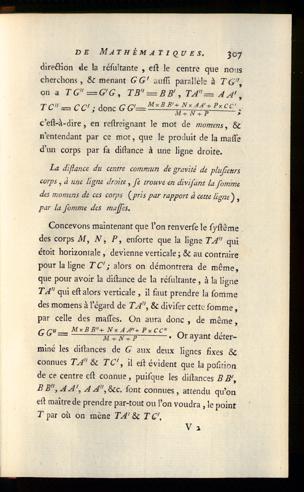 DE MATHÉMATIQUES. 307
direction de la résultante, est le centre que nous
cherchons, & menant GG' aussi parallèle à TG",
on a TG" = G'G, TB" = BB', TA" = AA',
TC" = CC'; donc GG' = M×BB' + N×AA' + P×CC' / M + N + P;
c'est-à-dire, en restreignant le mot de momens, &
n'entendant par ce mot, que le produit de la masse
d'un corps par sa distance à une ligne droite.
La distance du centre commun de gravité de plusieurs
corps, à une ligne droite, se trouve en divisant la somme
des momens de ces corps (pris par rapport à cette ligne),
par la somme des masses.
Concevons maintenant que l'on renverse le systême
des corps M, N, P, ensorte que la ligne TA" qui
étoit horizontale, devienne verticale; & au contraire
pour la ligne TC'; alors on démontrera de même,
que pour avoir la distance de la résultante, à la ligne
TA" qui est alors verticale, il faut prendre la somme
des momens à l'égard de TA", & diviser cette somme,
par celle des masses. On aura donc, de même,
GG" = M×BB" + N×AA" + P×CC" / M + N + P. Or ayant déter-
miné les distances de G aux deux lignes fixes &
connues TA" & TC', il est évident que la position
de ce centre est connue, puisque les distances BB',
BB", AA', AA", &c. sont connues, attendu qu'on
est maître de prendre par-tout où l'on voudra, le point
T par où on mène TA' & TC'.
V 2